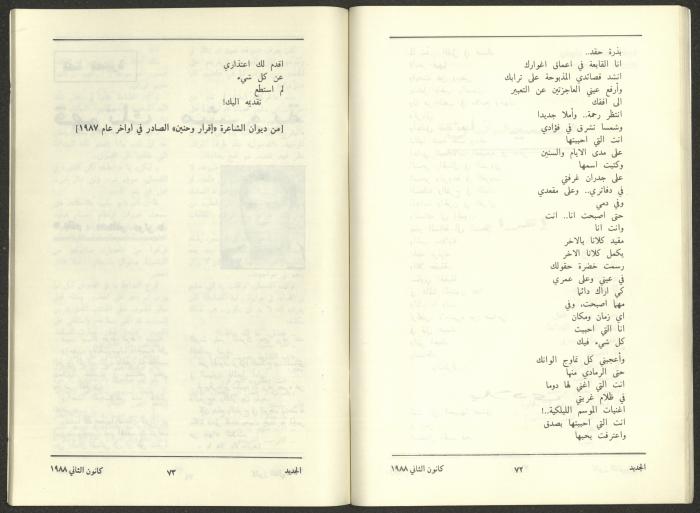 بذرة حقد..
انا القابعة في اعماق اغوارك
انشد قصائدي المذبوحة على ترابك
وأرفع عيني العاجزتين عن التعبير
الى افقك
انتظر رحمة.. وأملا جديدا
وشمسا تشرق في فؤادي
انت التي احببتها
على مدى الايام والسنين
وكتبت اسمها
على جدران غرفتي
في دفاتري.. وعلى مقعدي
وفي دمي
حتى اصبحت انا.. انت
وانت انا
مقيد كلانا بالآخر
يكمل كلانا الآخر
رسمت خضرة حقولك
في عيني وعلى عمري
كي اراك دائما
مهما اصبحت، وفي
اي زمان ومكان
انا التي احببت
كل شيء فيك
وأعجبني كل تماوج الوانك
حتى الرمادي منها
انت التي اغني لها دوما
في ظلام غربتي
اغنيات الموسم الليلكية..!
انت التي احببتها بصدق
واعترفت بحبها
الجديد ٧٢ كانون الثاني ١٩٨٨
اقدم لك اعتذاري
عن كل شيء
لم استطع
تقديمه اليك!
[من ديوان الشاعرة «إقرار وحنين» الصادر في اواخر عام ١٩٨٧]
الجديد ٧٣ كانون الثاني ١٩٨٨